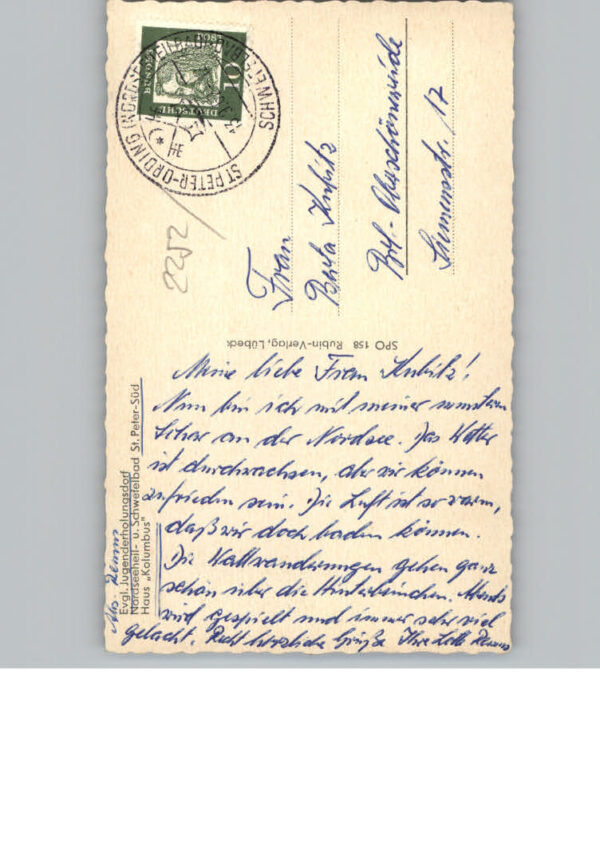 Meine liebe Frau Kubitz!
Nun bin ich mit meiner munteren
Schar an der Nordsee. Das Wetter
ist durchwachsen, aber wir können
zufrieden sein. Die Luft ist so warm,
daß wir doch baden können.
Die Wattwanderungen gehen ganz
schön über die Hinterbeinchen. Abends
wird gespielt und immer sehr viel
gelacht. Recht herzliche Grüße Ihre
Abs.
Evgl. Jugenderholungsdorf
Nordseeheil- u. Schwefelbad St. Peter-Süd
Haus „Kolumbus"
SPO 158 Rubin-Verlag, Lübeck
Frau
Berta Kubitz
Bel.-Oberschöneweide
Siemensstr. 17
2252
DEUTSCHE
BUNDES
POST
10
ST PETER-ORDING